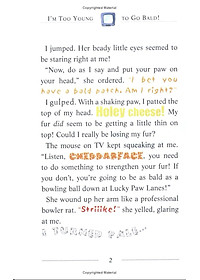 (Sycamore Canyon, black)
I'M TOO YOUNG TO GO BALD!
I jumped. Her beady little eyes seemed
to be staring right at me!
"Now, do as I say and put your paw on
your head," she ordered. "I bet you
have a bald patch. Am I right?"
I gulped. With a shaking paw, I patted the
top of my head. Holey cheese! My
fur did seem to be getting a little thin on
top! Could I really be losing my fur?
The mouse on TV kept squeaking at me.
"Listen, CHEDDARFACE, you need
to do something to strengthen your fur! If
you don't, you're going to be as bald as a
bowling ball down at Lucky Paw Lanes!"
She wound up her arm like a professional
bowler rat. "Striiike!" she yelled, glaring
at me.
I TURNED PALE.
2